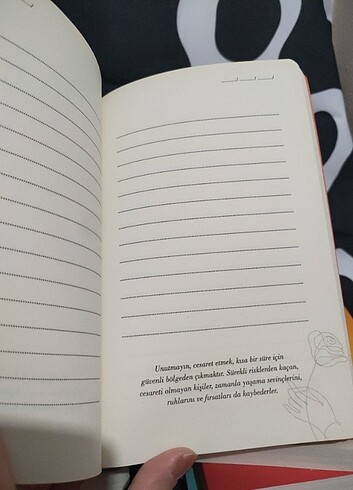 Unutmayın, cesaret etmek, kısa bir süre için
güvenli bölgeden çıkmaktır. Sürekli risklerden kaçan,
cesareti olmayan kişiler, zamanla yaşama sevinçlerini,
ruhlarını ve fırsatları da kaybederler.